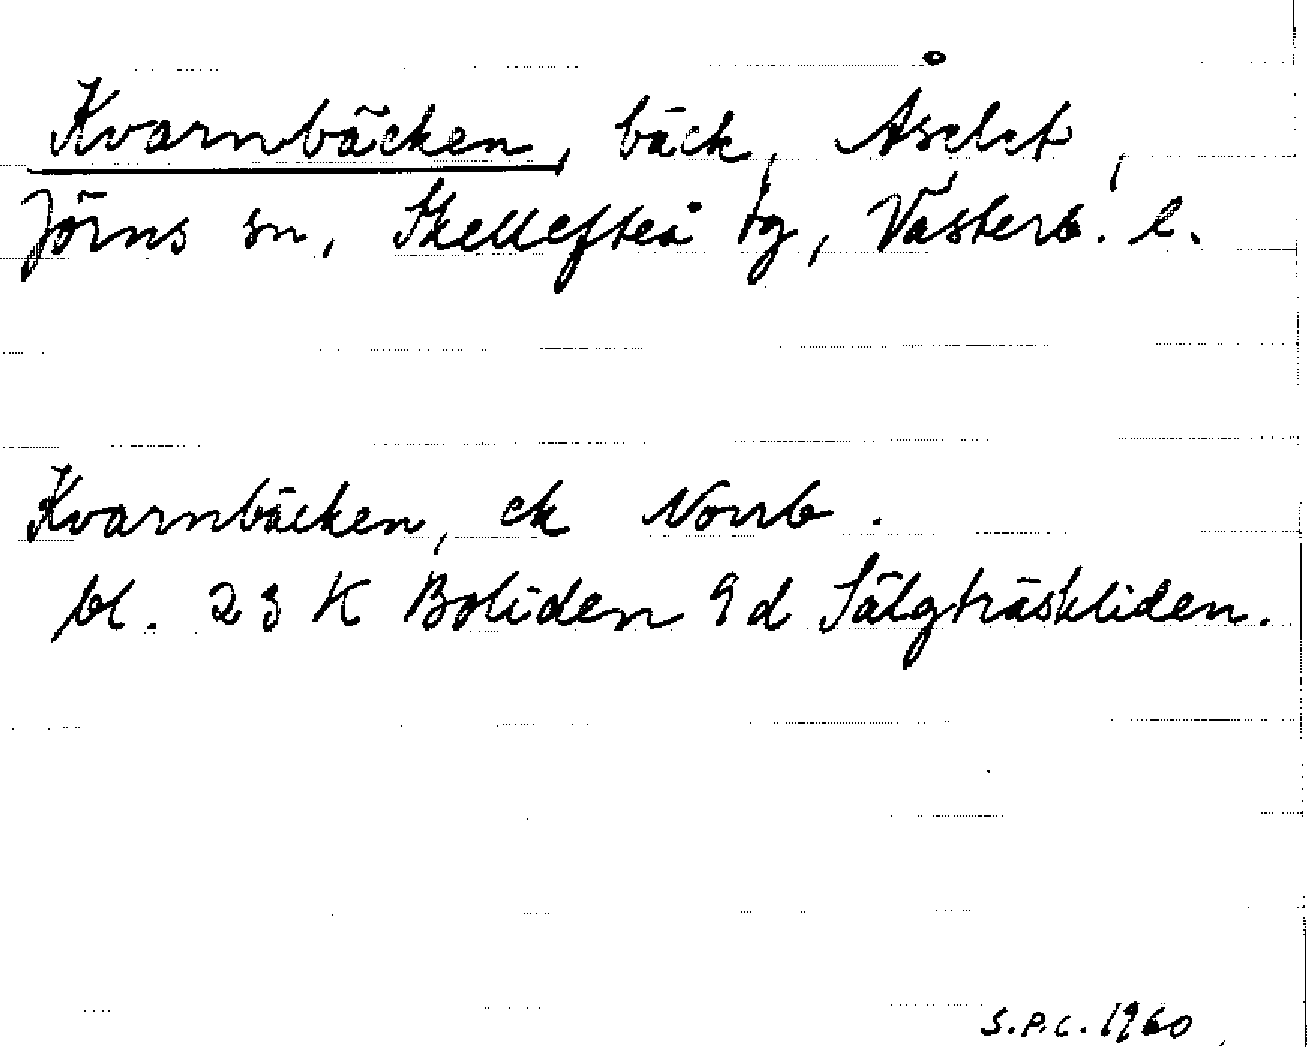 Kvarnbäcken, bäck, Åselet,
Jörns sn, Skellefteå tg, Västerb. l.
Kvarnbäcken, ek Norrb.
bl. 23 K Boliden 9d Sälgträskliden.
S.P.C. 1960